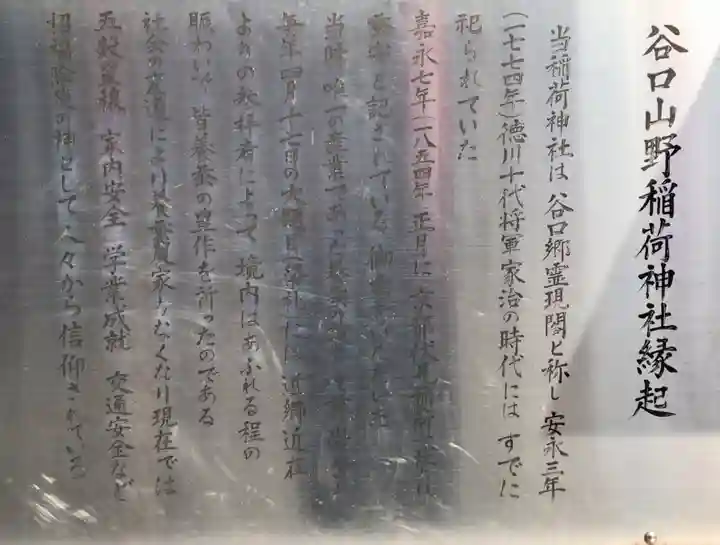 谷口山野稲荷神社縁起
当稲荷神社は 谷口郷霊現閣と称し 安永三年
(一七七四年)徳川十代将軍家治の時代には すでに
祀られていた
嘉永七年(一八五四年 正月に
と記されている
当時 唯一の産業であった
毎年四月十七日の大縁日祭礼には 近郷近在
よりの参拝者によって 境内はあふれる程の
賑わいで 皆養蚕の豊作を祈ったのである
社会の変遷により養蚕農家もなくなり現在では
五穀豊穣 家内安全 学業成就 交通安全など
招福除災の神として人々から信仰されている